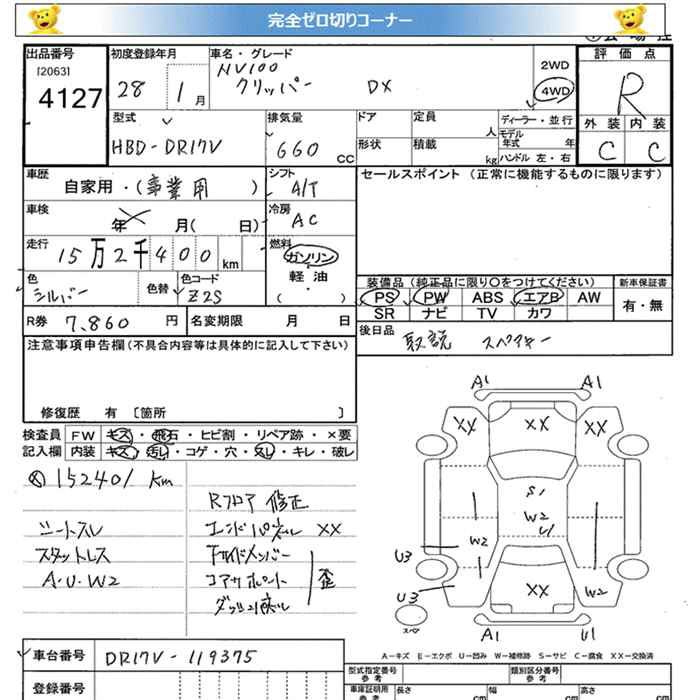 完全ゼロ切りコーナー
出品番号
[2063]
4127
初度登録年月
28 1月
車名・グレード
NV100
クリッパー DX
2WD
4WD
評価点
R
外装 内装
C C
型式
HBD-DR17V
排気量
660 CC
ドア
形状
定員
人
積載
kg
ディーラー・並行
モデル年式 年
ハンドル 左・右
車歴
自家用・(事業用)
シフト
A/T
セールスポイント(正常に機能するものに限ります)
車検
年 月( 日)
冷房
AC
走行
15万2千400km
燃料
ガソリン
軽油
( ・ )
色
シルバー
色替
色コード
Z2S
装備品(純正品に限り○をつけてください)
新車保証書
PS PW ABS エアB AW
SR ナビ TV カワ
有・無
R券 7,860 円
名変期限 月 日
後日品
取説 スペアキー
注意事項申告欄(不具合内容等は具体的に記入して下さい)
修復歴 有 [箇所 ]
検査員 FW キズ・飛石・ヒビ割・リペア跡・×要
記入欄 内装 キズ・汚レ・コゲ・穴・スレ・キレ・破レ
152401 Km
Rフロア修正
シートスレ
エンドパネル XX
スタットレス
サイドメンバー
A・U・W2
コアサポート
歪
A1 A1
XX XX XX
S1
W2
U1
W2
U3
XX
W2
U3
スペア
A1 U1
A=キズ E=エクボ U=凹み W=補修跡 S=サビ C=腐食 XX=交換済
車台番号 DR17V-119375
登録番号
型式指定番号
参考
類別区分番号
参考
車庫証明用
参考
長さ cm
幅 cm
高さ cm